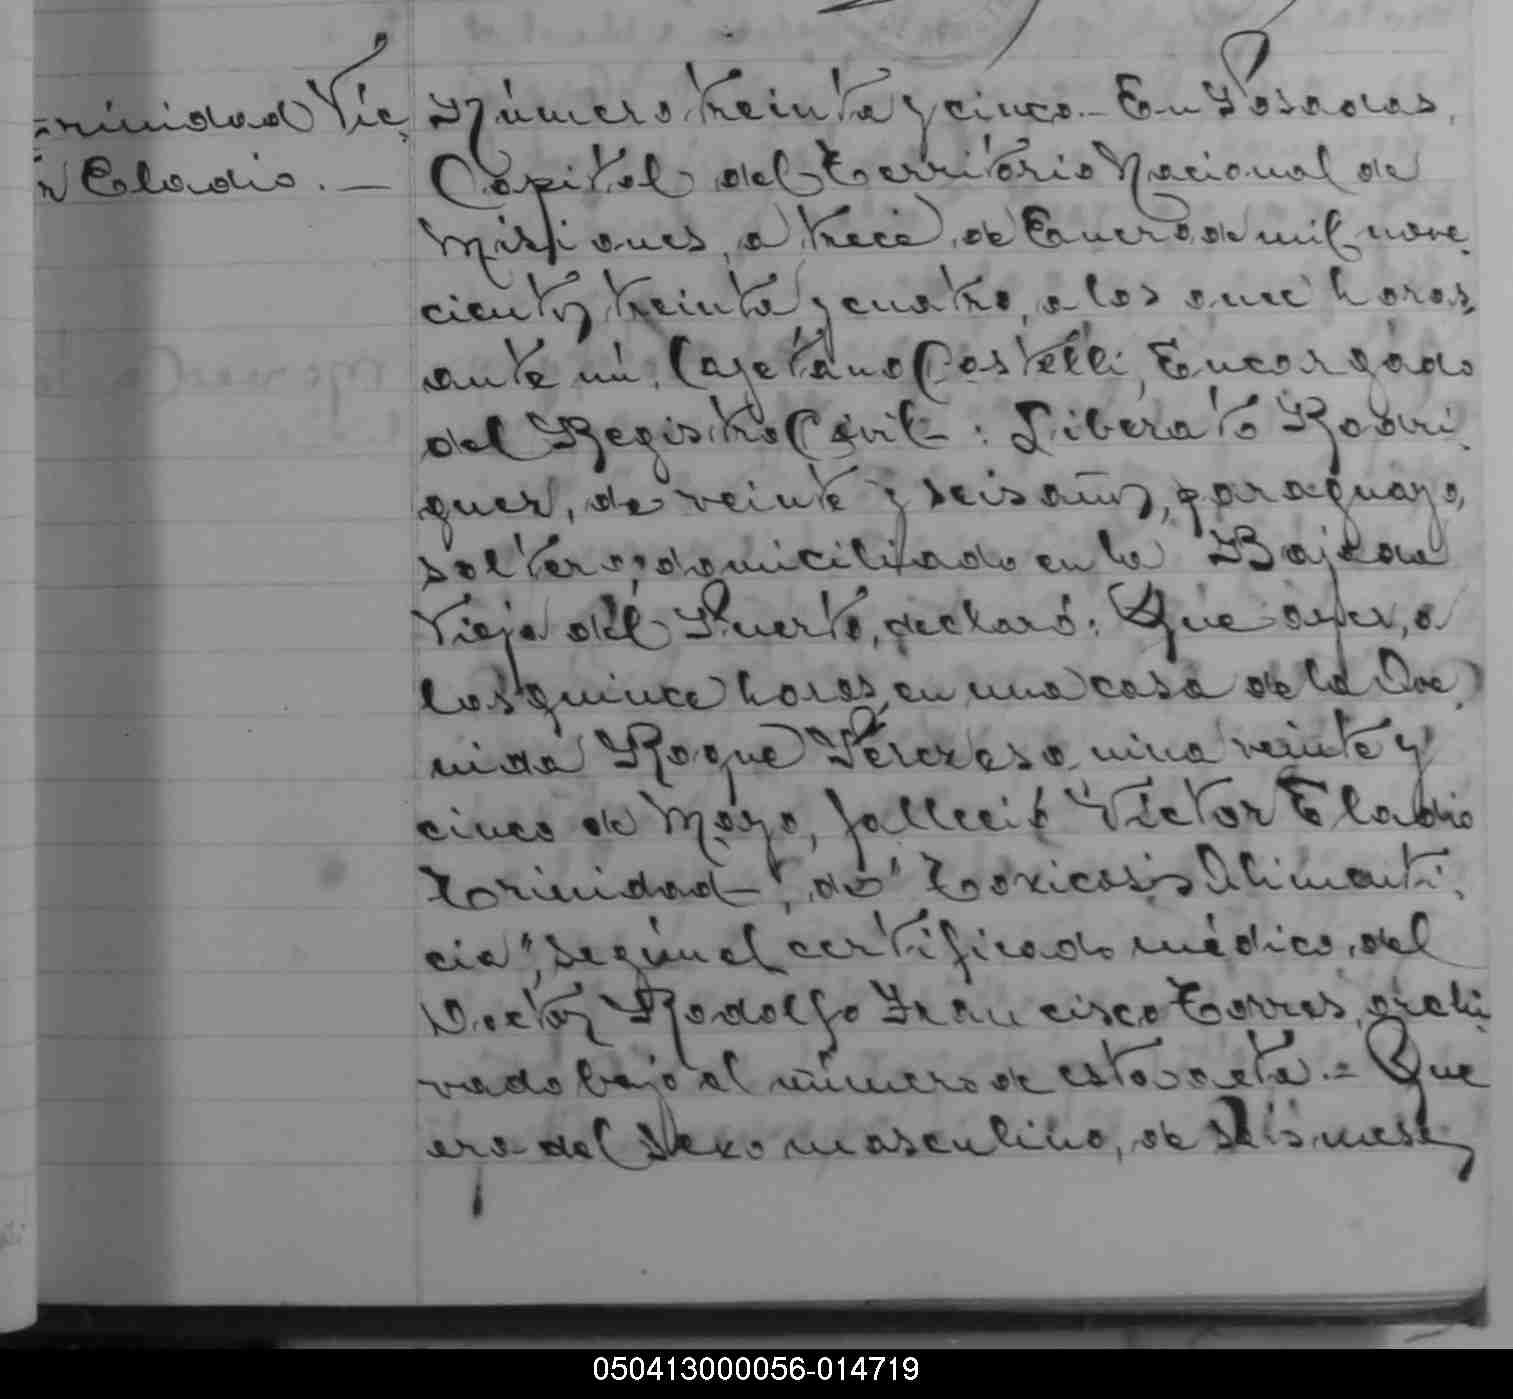 rinidad Vic
r Eladio. —
Número treinta y cinco.- En Posadas,
Capital del Territorio Nacional de
Misiones, a trece de Enero de mil nove
cientos treinta y cuatro, a las once horas,
ante mi, Cayetano Castelli, Encargado
del Registro Civil - : Liberato Rodri
guez, de veinte y seis años, paraguayo,
soltero, domiciliado en la Bajada
Vieja del Puerto, declaró: Que ayer, a
las quince horas, en una casa de la Ave
nida Roque Perez esquina veinte y
cinco de Mayo, falleció "Victor Eladio
Trinidad", de "Toxicosis Alimenti
cia", según el certificado médico, del
Doctor Rodolfo Francisco Torres, archi
vado bajo el número de esta acta.= Que
era del sexo masculino, de seis meses
050413000056-014719